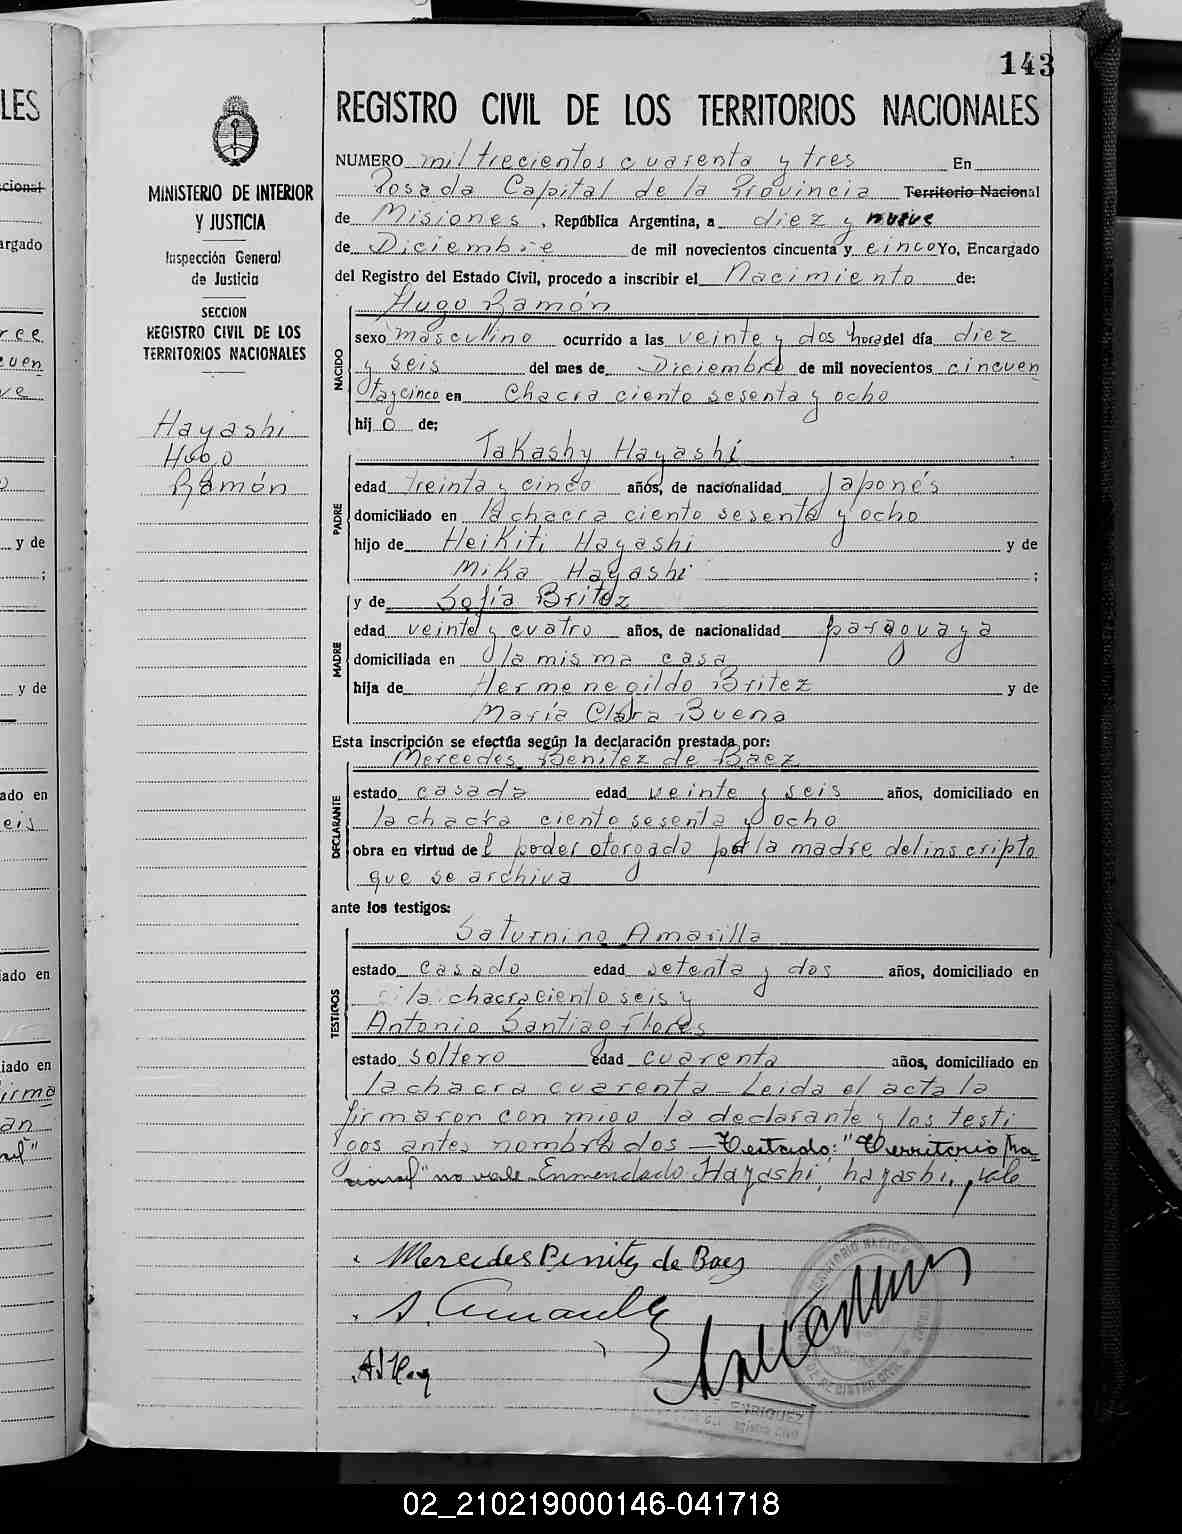 143
REGISTRO CIVIL DE LOS TERRITORIOS NACIONALES
MINISTERIO DE INTERIOR
Y JUSTICIA
Inspección General
de Justicia
SECCION
REGISTRO CIVIL DE LOS
TERRITORIOS NACIONALES
Hayashi
Hugo
Ramón
NUMERO mil trecientos cuarenta y tres En
Posada Capital de la Provincia Territorio Nacional
de Misiones, República Argentina, a diez y nueve
de Diciembre de mil novecientos cincuenta y cinco Yo, Encargado
del Registro del Estado Civil, procedo a inscribir el Nacimiento de:
Hugo Ramón
NACIDO
sexo masculino ocurrido a las veinte y dos horas del día diez
y seis del mes de Diciembre de mil novecientos cincuen
tay cinco en Chacra ciento sesenta y ocho
hijo de;
Takashy Hayashi
PADRE
edad treinta y cinco años, de nacionalidad japonés
domiciliado en la chacra ciento sesenta y ocho
hijo de Heikiti Hayashi y de
Mika Hayashi ;
y de Sofia Britez
MADRE
edad veinte y cuatro años, de nacionalidad paraguaya
domiciliada en la misma casa
hija de Hermenegildo Britez y de
María Clara Buena
Esta inscripción se efectúa según la declaración prestada por:
Mercedes Benitez de Baez
DECLARANTE
estado casada edad veinte y seis años, domiciliado en
la chacra ciento sesenta y ocho
obra en virtud del poder otorgado por la madre del inscripto
que se archiva
ante los testigos:
Saturnino Amarilla
TESTIGOS
estado casado edad setenta y dos años, domiciliado en
la chacra ciento seis y
Antonio Santiago Flores
estado soltero edad cuarenta años, domiciliado en
la chacra cuarenta Leida el acta la
firmaron con migo la declarante y los testi
gos antes nombrados — Testado: "Territorio Na-
cional" no vale Enmendado Hayashi, hayashi, vale
Mercedes Benitez de Baez
S. Amarilla
ENRIQUEZ
02_210219000146-041718